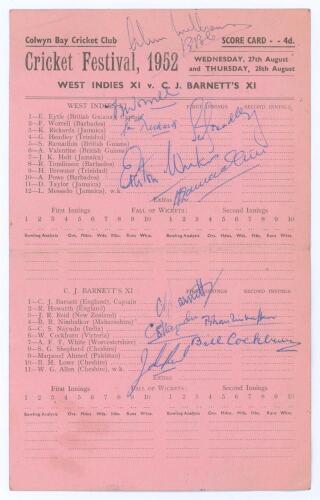 Colwyn Bay Cricket Club
SCORE CARD -- 4d.
Cricket Festival, 1952
WEDNESDAY, 27th August
and THURSDAY, 28th August
WEST INDIES XI v. C. J. BARNETT'S XI
WEST INDIES INNINGS SECOND INNINGS
1—E. Eytle (British Guiana)
2—F. Worrell (Barbados)
3—K. Rickards (Jamaica)
4—G. Headley (Jamaica)
5—S. Ramadhin (British Guiana)
6—A. Valentine (British Guiana)
7—J. K. Holt (Jamaica)
8—C. Tomlinson (Barbados)
9—H. Brewster (Trinidad)
10—A. Powe (Barbados)
11—D. Taylor (Jamaica)
12—L. Mossado (Jamaica), w.k.
Extras
First Innings FALL OF WICKETS: Second Innings
1 2 3 4 5 6 7 8 9 10 1 2 3 4 5 6 7 8 9 10
Bowling Analysis Ovs. Mdns. Wds. Runs Wkts. Ovs. Mdns. Wds. Runs Wkts.
C. J. BARNETT'S XI INNINGS SECOND INNINGS
1—C. J. Barnett (England), Captain
2—R. Howarth (England)
3—J. R. Reid (New Zealand)
4—B. B. Nimbalkar (Maharashtra)
5—C. S. Nayudu (India)
6—W. Cockburn (Victoria)
7—A. F. T. White (Worcestershire)
8—S. G. Shepherd (Cheshire)
9—Maqsood Ahmed (Pakistan)
10—B. M. Lowe (Cheshire)
11—W. G. Allen (Cheshire), w.k.
C. Barnett
Bill Cockburn
Extras
First Innings FALL OF WICKETS: Second Innings
1 2 3 4 5 6 7 8 9 10 1 2 3 4 5 6 7 8 9 10
Bowling Analysis Ovs. Mdns. Wds. Runs Wkts. Ovs. Mdns. Wds. Runs Wkts.